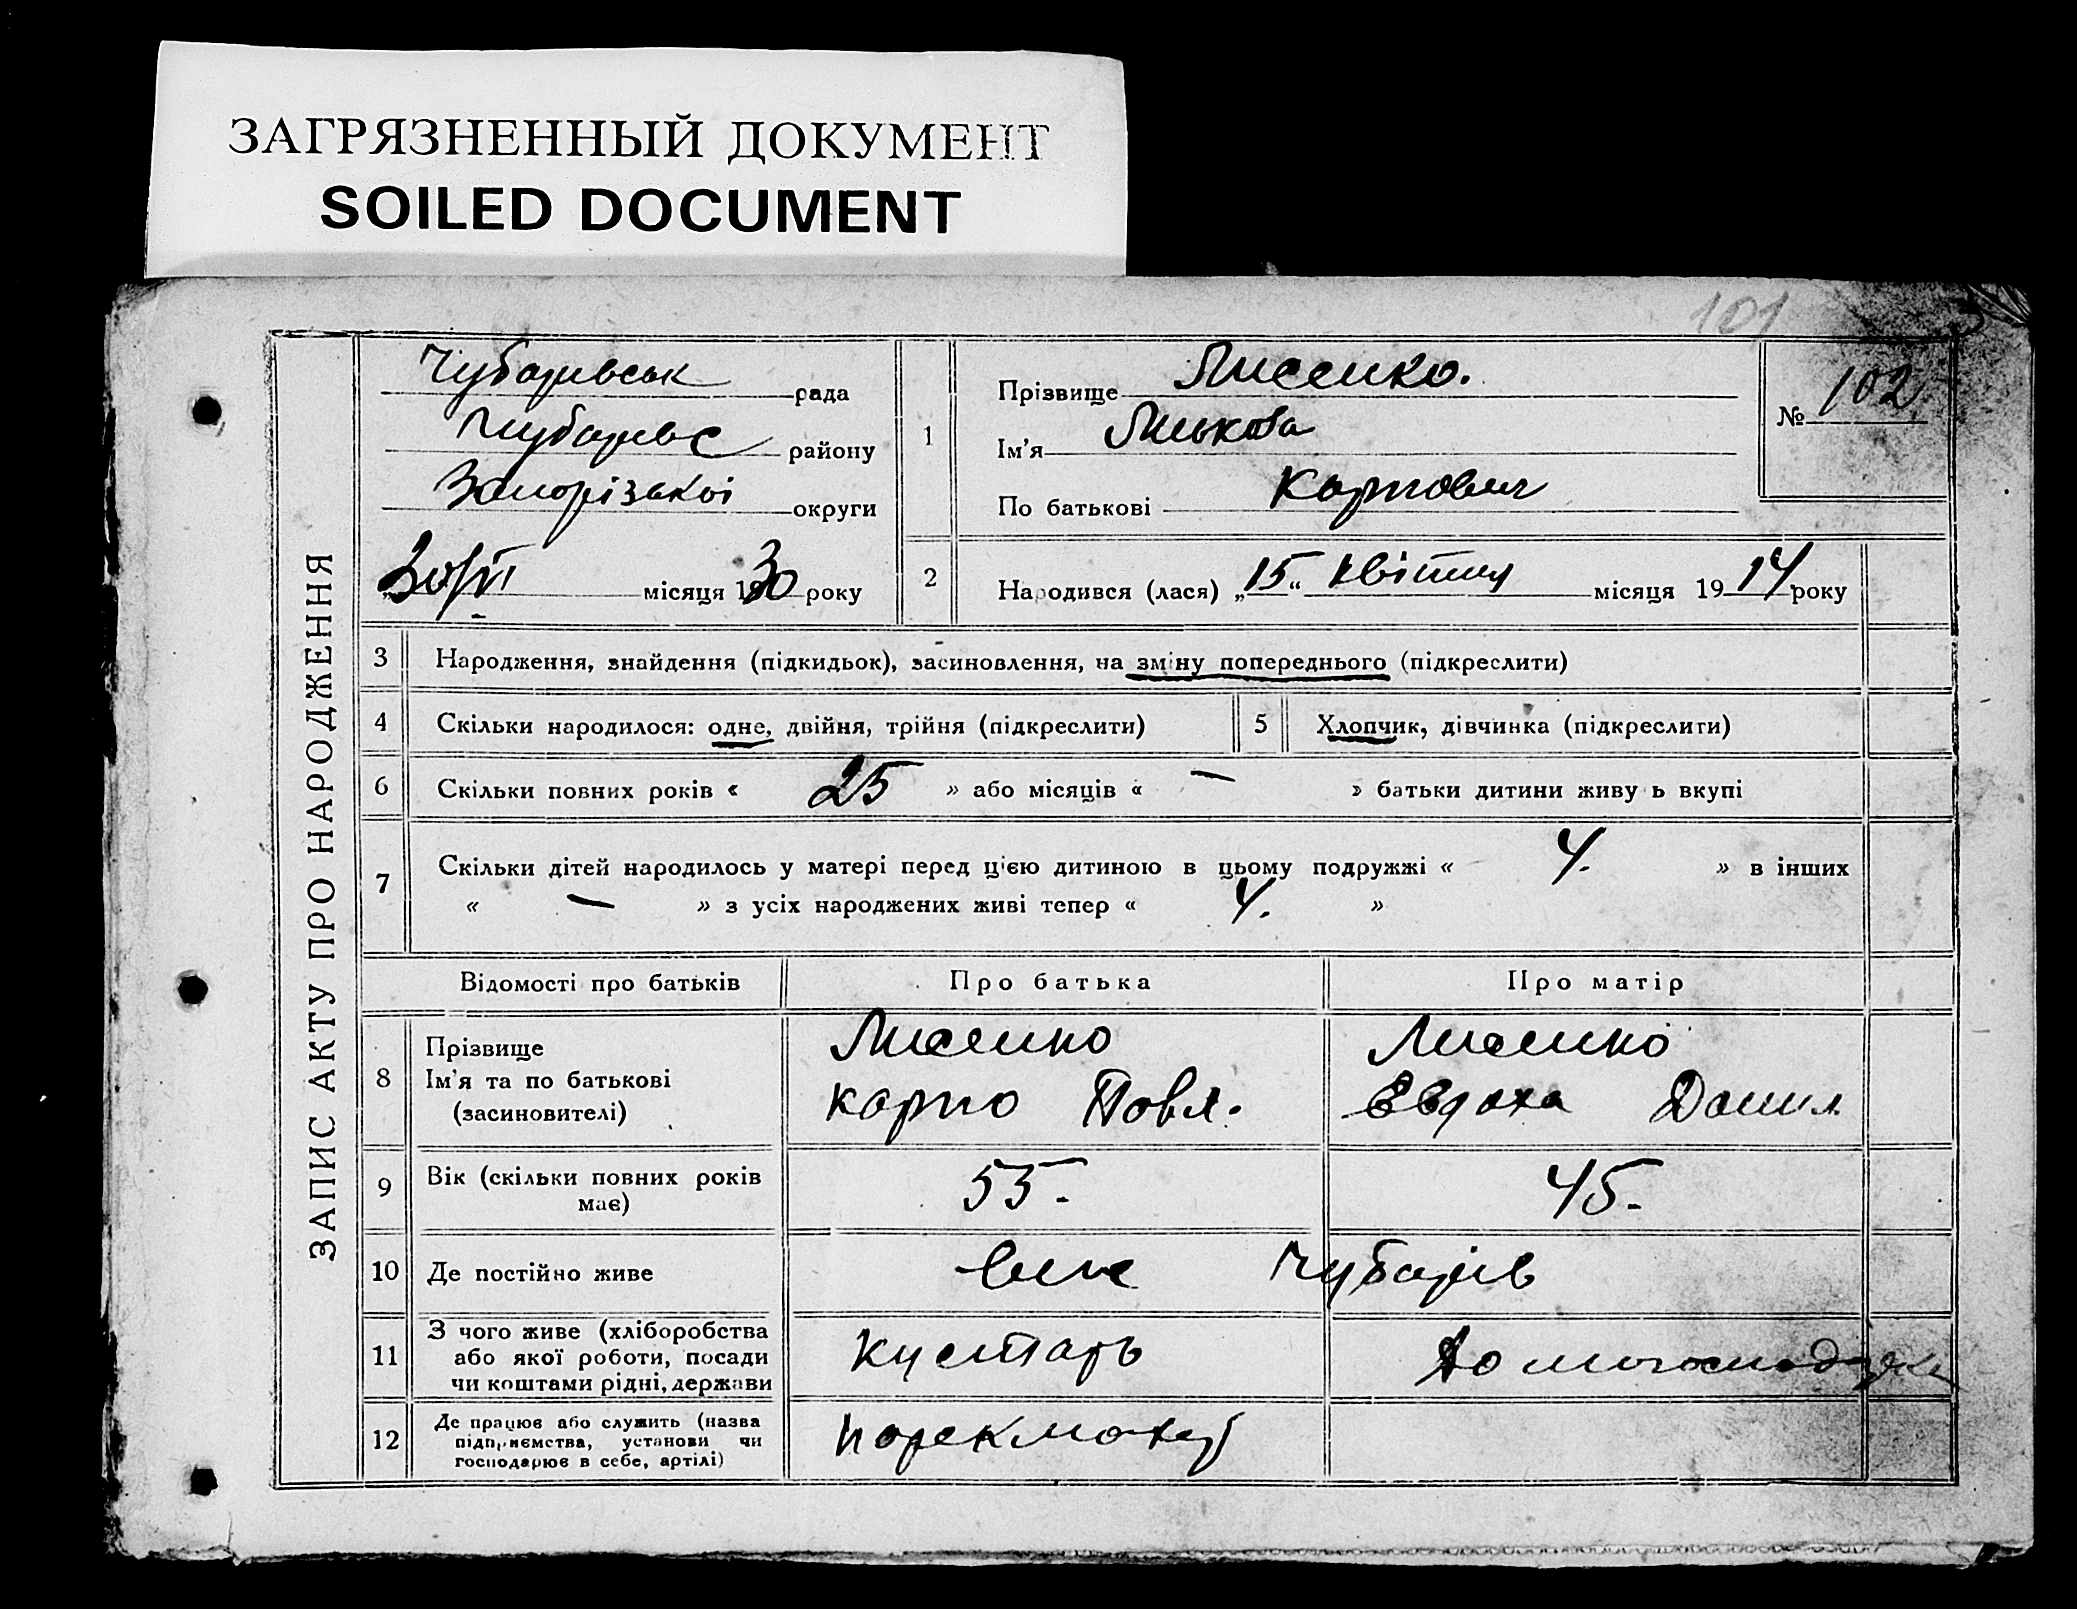 ЗАГРЯЗНЕННЫЙ ДОКУМЕНТ
SOILED DOCUMENT
101
ЗАПИС АКТУ ПРО НАРОДЖЕННЯ
Чубарівськ рада
Чубарівс району
Запорізької округи
місяця 1930 року
1
Прізвище Лисенко.
Ім'я
По батькові Карпович
№ 102
2
Народився (лася) „15“ квітня місяця 1914 року
3 Народження, знайдення (підкидьок), засиновлення, на зміну попереднього (підкреслити)
4 Скільки народилося: одне, двійня, трійня (підкреслити) 5 Хлопчик, дівчинка (підкреслити)
6 Скільки повних років « 25 » або місяців « — » батьки дитини живуть вкупі
7 Скільки дітей народилось у матері перед цією дитиною в цьому подружжі « 4. » в інших
« — » з усіх народжених живі тепер « 4. »
Відомості про батьків Про батька Про матір
8 Прізвище
Ім'я та по батькові
(засиновителі)
Лисенко
Карпо Павл.
Лисенко
Евдоха Данил
9 Вік (скільки повних років
має)
55.
45.
10 Де постійно живе Чубарів
11 З чого живе (хліборобства
або якої роботи, посади
чи коштами рідні, держави
Кустарь
12 Де працює або служить (назва
підприємства, установи чи
господарює в себе, артілі)